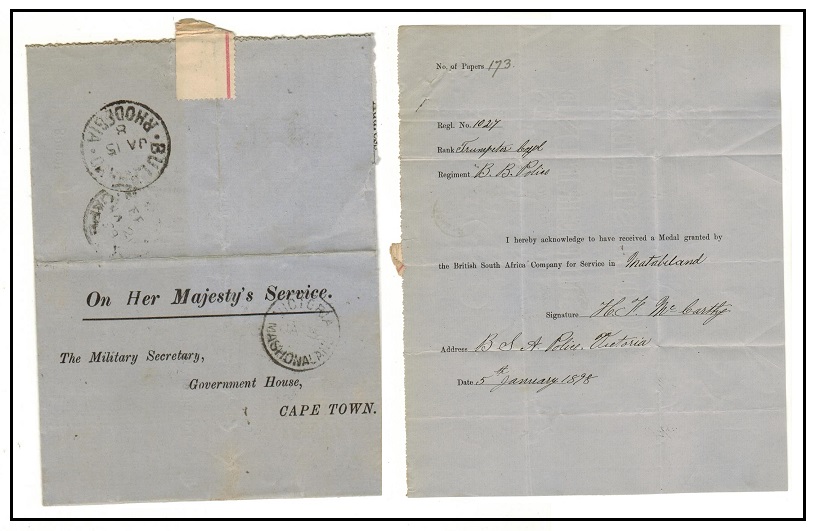 BUL
RHODESIA
JA 15
8
On Her Majesty's Service.
VICTORIA
MASHONALAN
The Military Secretary,
Government House,
CAPE TOWN.
No. of Papers 173
Regl. No. 1027
Rank Trumpeter
Regiment B. B. Police
I hereby acknowledge to have received a Medal granted by
the British South Africa Company for Service in Matabeland
Signature H. F. McCarthy
Address B S A Police, Victoria
Date 5th January 1898